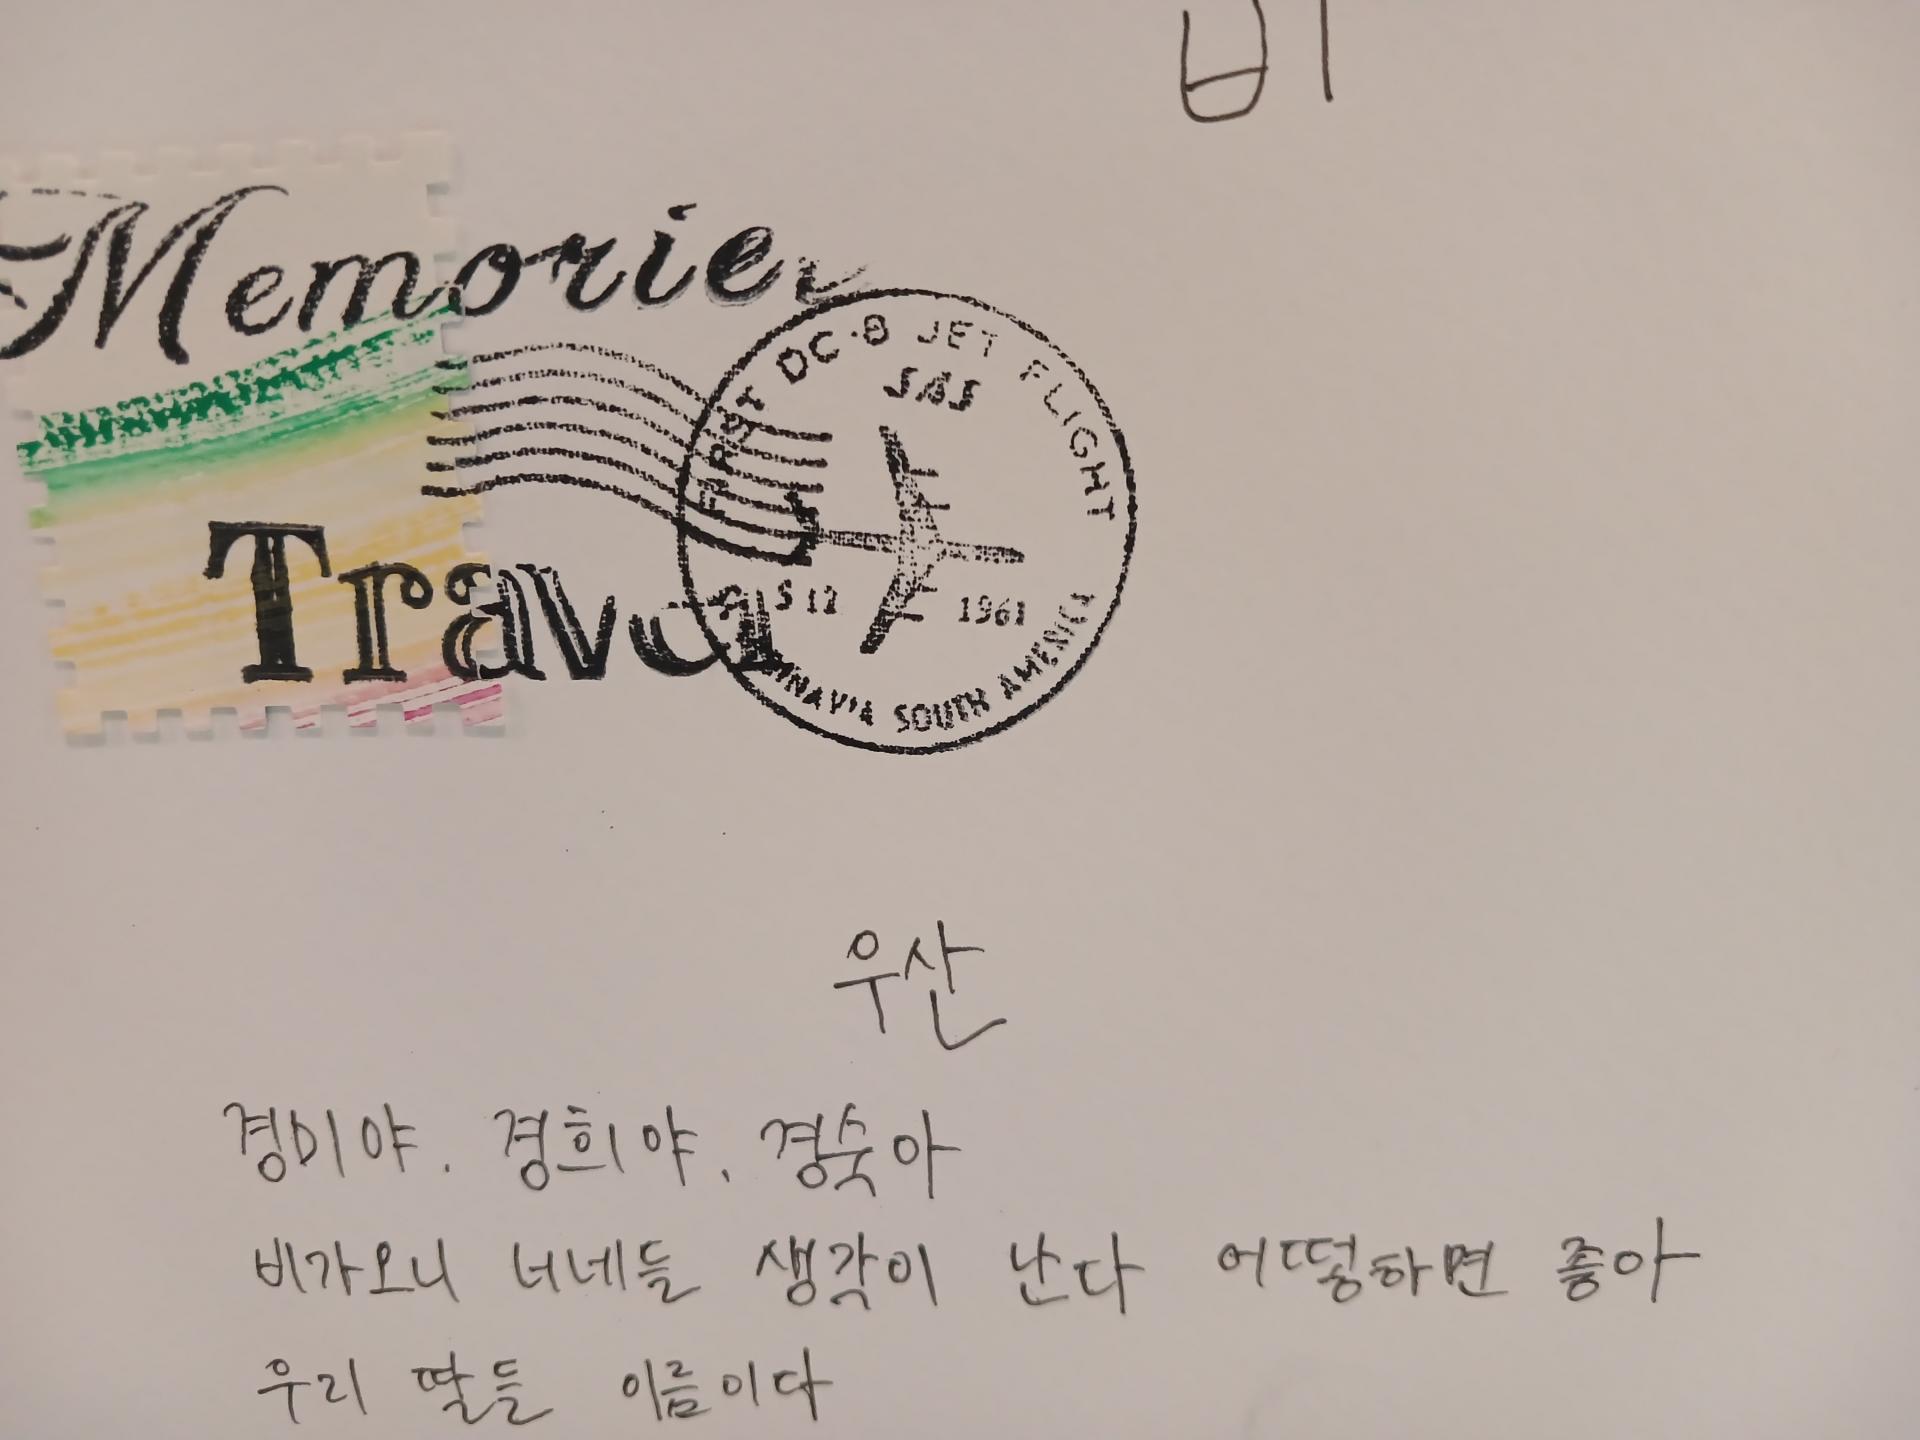 비
Memories
FIRST DC-8 JET FLIGHT
SAS
Travel
S 12 1961
SOUTH AMERICA
우산
경미야. 경희야. 경숙아
비가오니 너네들 생각이 난다 어떻하면 좋아
우리 딸들 이름이다